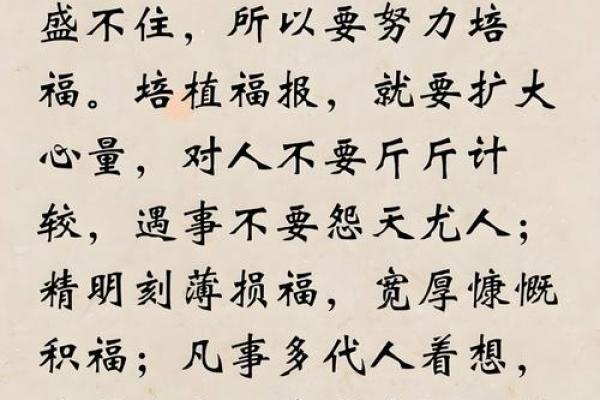 盛不住，所以要努力培
福。培植福报，就要扩大
心量，对人不要斤斤计
较，遇事不要怨天尤人；
精明刻薄损福，宽厚慷慨
积福；凡事多代人着想，